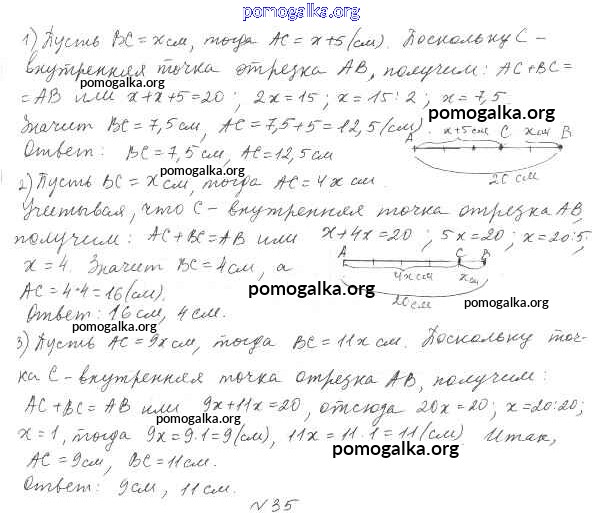 pomogalka.org
1) Пусть BC = x см, тогда AC = x+5 (см). Поскольку C -
pomogalka.org
внутренняя точка отрезка AB, получим: AC+BC =
= AB или x+x+5=20; 2x=15; x=15:2; x=7,5
pomogalka.org
Значит BC=7,5 см, AC=7,5+5=12,5 (см)
A x+5 см C x см B
Ответ: BC=7,5 см, AC=12,5 см
20 см
pomogalka.org
2) Пусть BC = x см, тогда AC = 4x см.
Учитывая, что C - внутренняя точка отрезка AB,
pomogalka.org
получим: AC+BC=AB или x+4x=20; 5x=20; x=20:5;
x=4. Значит BC=4 см, а
A C B
4x см x см
AC=4·4=16 (см).
pomogalka.org
20 см
Ответ: 16 см, 4 см.
pomogalka.org
3) Пусть AC=9x см, тогда BC=11x см. Поскольку точ-
pomogalka.org
ка C - внутренняя точка отрезка AB, получим:
AC+BC=AB или 9x+11x=20, отсюда 20x=20; x=20:20;
pomogalka.org
x=1, тогда 9x=9·1=9 (см), 11x=11·1=11 (см) Итак,
AC=9 см, BC=11 см.
pomogalka.org
Ответ: 9 см, 11 см.
pomogalka.org
№35